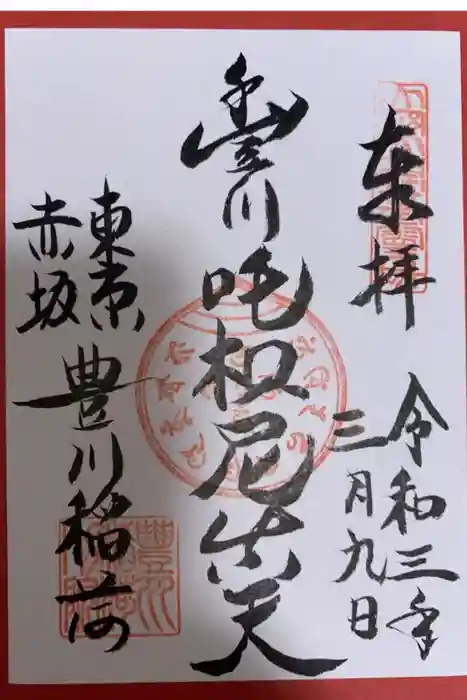 奉拝
令和三年
三月九日
豊川
吒枳尼真天
東京
赤坂
豊川稲荷